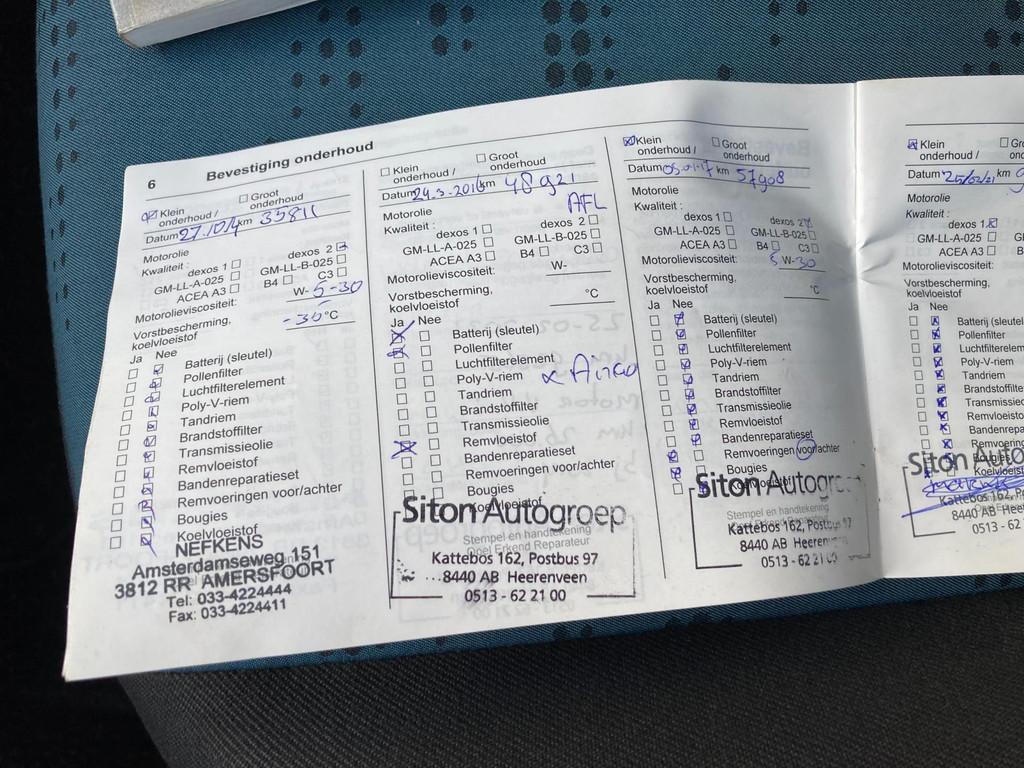 6 Bevestiging onderhoud
Klein onderhoud / Groot onderhoud
Datum 27.10/14 km 35811
Motorolie
Kwaliteit : dexos 1 dexos 2
GM-LL-A-025 GM-LL-B-025
ACEA A3 B4 C3
Motorolieviscositeit: W- 5-30
Vorstbescherming,
koelvloeistof -30 °C
Ja Nee
Batterij (sleutel)
Pollenfilter
Luchtfilterelement
Poly-V-riem
Tandriem
Brandstoffilter
Transmissieolie
Remvloeistof
Bandenreparatieset
Remvoeringen voor/achter
Bougies
Koelvloeistof
NEFKENS
Amsterdamseweg 151
3812 RR AMERSFOORT
Tel: 033-4224444
Fax: 033-4224411
Klein onderhoud / Groot onderhoud
Datum 24.3.2016 km 48921
Motorolie AFL
Kwaliteit : dexos 1 dexos 2
GM-LL-A-025 GM-LL-B-025
ACEA A3 B4 C3
Motorolieviscositeit: W-
Vorstbescherming,
koelvloeistof °C
Ja Nee
Batterij (sleutel)
Pollenfilter
Luchtfilterelement
Poly-V-riem x Airco
Tandriem
Brandstoffilter
Transmissieolie
Remvloeistof
Bandenreparatieset
Remvoeringen voor/achter
Bougies
Koelvloeistof
Siton Autogroep
Stempel en handtekening
Opel Erkend Reparateur
Kattebos 162, Postbus 97
8440 AB Heerenveen
0513 - 62 21 00
Klein onderhoud / Groot onderhoud
Datum 05-01-17 km 57908
Motorolie
Kwaliteit : dexos 1 dexos 2
GM-LL-A-025 GM-LL-B-025
ACEA A3 B4 C3
Motorolieviscositeit: 5 W-30
Vorstbescherming,
koelvloeistof °C
Ja Nee
Batterij (sleutel)
Pollenfilter
Luchtfilterelement
Poly-V-riem
Tandriem
Brandstoffilter
Transmissieolie
Remvloeistof
Bandenreparatieset
Remvoeringen voor/achter
Bougies
Koelvloeistof
Siton Autogro
Stempel en handtekening
Kattebos 162, Postbus 97
8440 AB Heeren
0513 - 62 21 00
Klein
onderhoud /
Datum 25/02/21 km
Motorolie
Kwaliteit :
dexos 1
GM-LL-A-025
ACEA A3
Motorolieviscositeit:
Vorstbescherming,
koelvloeistof
Ja Nee
Batterij (sleutel)
Pollenfilter
Luchtfilterelem
Poly-V-riem
Tandriem
Brandstoffilte
Transmissieo
Remvloeisto
Bandenrepara
Remvoering
Bougies
Koelvloeistof
Siton Auto
Kattebos 162, P
8440 AB Hee
0513 - 62